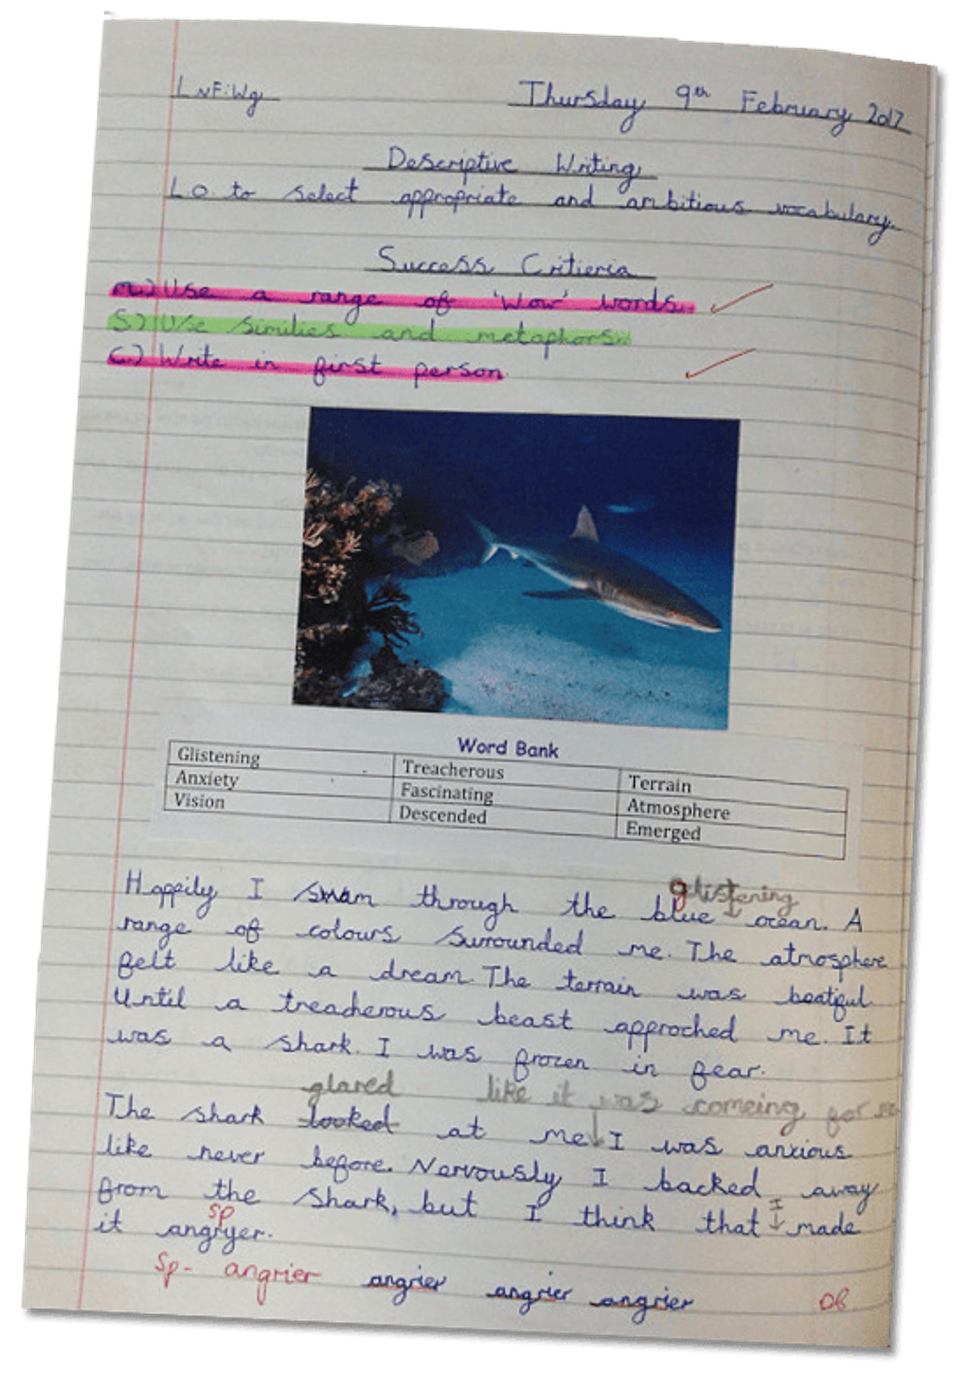 LNF:Wg Thursday 9th February 2017
Descriptive Writing
L.O. to select appropriate and ambitious vocabulary.
Success Critieria
M.) Use a range of 'Wow' words.
S.) Use similies and metaphors.
C.) Write in first person.
Word Bank
Glistening Treacherous Terrain
Anxiety Fascinating Atmosphere
Vision Descended Emerged
glistening
Happily I swam through the blue ocean. A
range of colours surrounded me. The atmosphere
felt like a dream. The terrain was beatiful
until a treacherous beast approched me. It
was a shark. I was frozen in fear.
glared like it was comeing for me
The shark looked at me I was anxious
like never before. Nervously I backed away
from the shark, but I think that I made
sp
it angryer.
Sp- angrier angrier angrier angrier